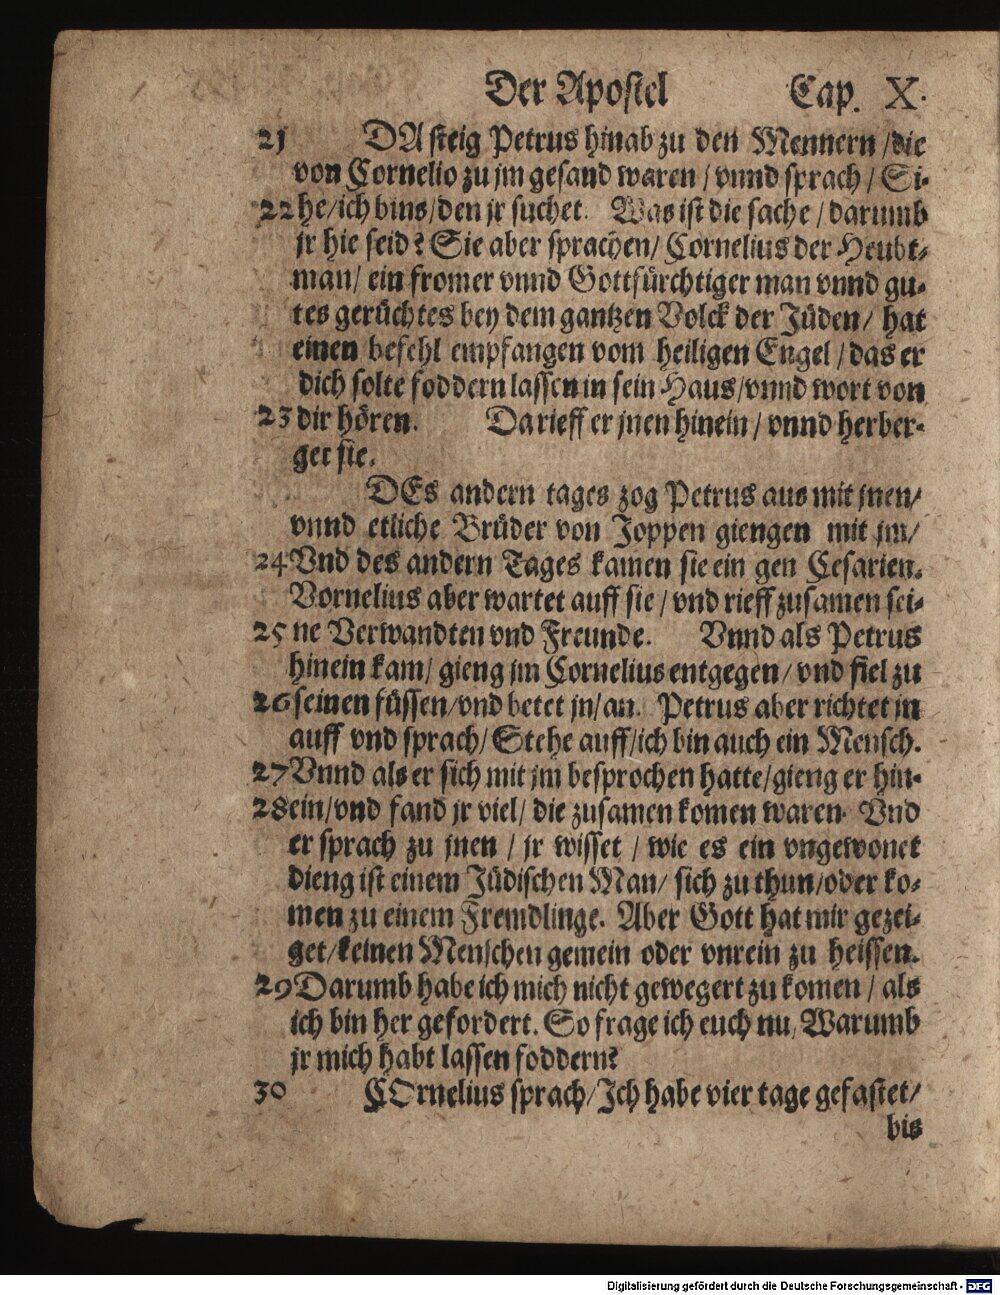 Der Apostel Cap. X.
21 DA steig Petrus hinab zu den Mennern / die
von Cornelio zu jm gesand waren / vnnd sprach / Si-
22 he / ich bins / den jr suchet. Was ist die sache / darumb
jr hie seid? Sie aber sprachen / Cornelius der Heubt-
man / ein fromer vnnd Gottfürchtiger man vnnd gu-
tes gerüchtes bey dem gantzen Volck der Jüden / hat
einen befehl empfangen vom heiligen Engel / das er
dich solte foddern lassen in sein Haus / vnnd wort von
23 dir hören. Da rieff er jnen hinein / vnnd herber-
get sie.
DEs andern tages zog Petrus aus mit jnen /
vnnd etliche Brüder von Joppen giengen mit jm /
24 Vnd des andern Tages kamen sie ein gen Cesarien.
Vornelius aber wartet auff sie / vnd rieff zusamen sei-
25 ne Verwandten vnd Freunde. Vnnd als Petrus
hinein kam / gieng jm Cornelius entgegen / vnd fiel zu
26 seinen füssen / vnd betet jn / an. Petrus aber richtet jn
auff vnd sprach / Stehe auff / ich bin auch ein Mensch.
27 Vnnd als er sich mit jm besprochen hatte / gieng er hin-
28 ein / vnd fand jr viel / die zusamen komen waren. Vnd
er sprach zu jnen / jr wisset / wie es ein vngewonet
dieng ist einem Jüdischen Man / sich zu thun / oder ko-
men zu einem Fremdlinge. Aber Gott hat mir gezei-
get / keinen Menschen gemein oder vnrein zu heissen.
29 Darumb habe ich mich nicht gewegert zu komen / als
ich bin her gefordert. So frage ich euch nu, Warumb
jr mich habt lassen foddern?
30 COrnelius sprach / Ich habe vier tage gefastet /
bis
Digitalisierung gefördert durch die Deutsche Forschungsgemeinschaft - DFG